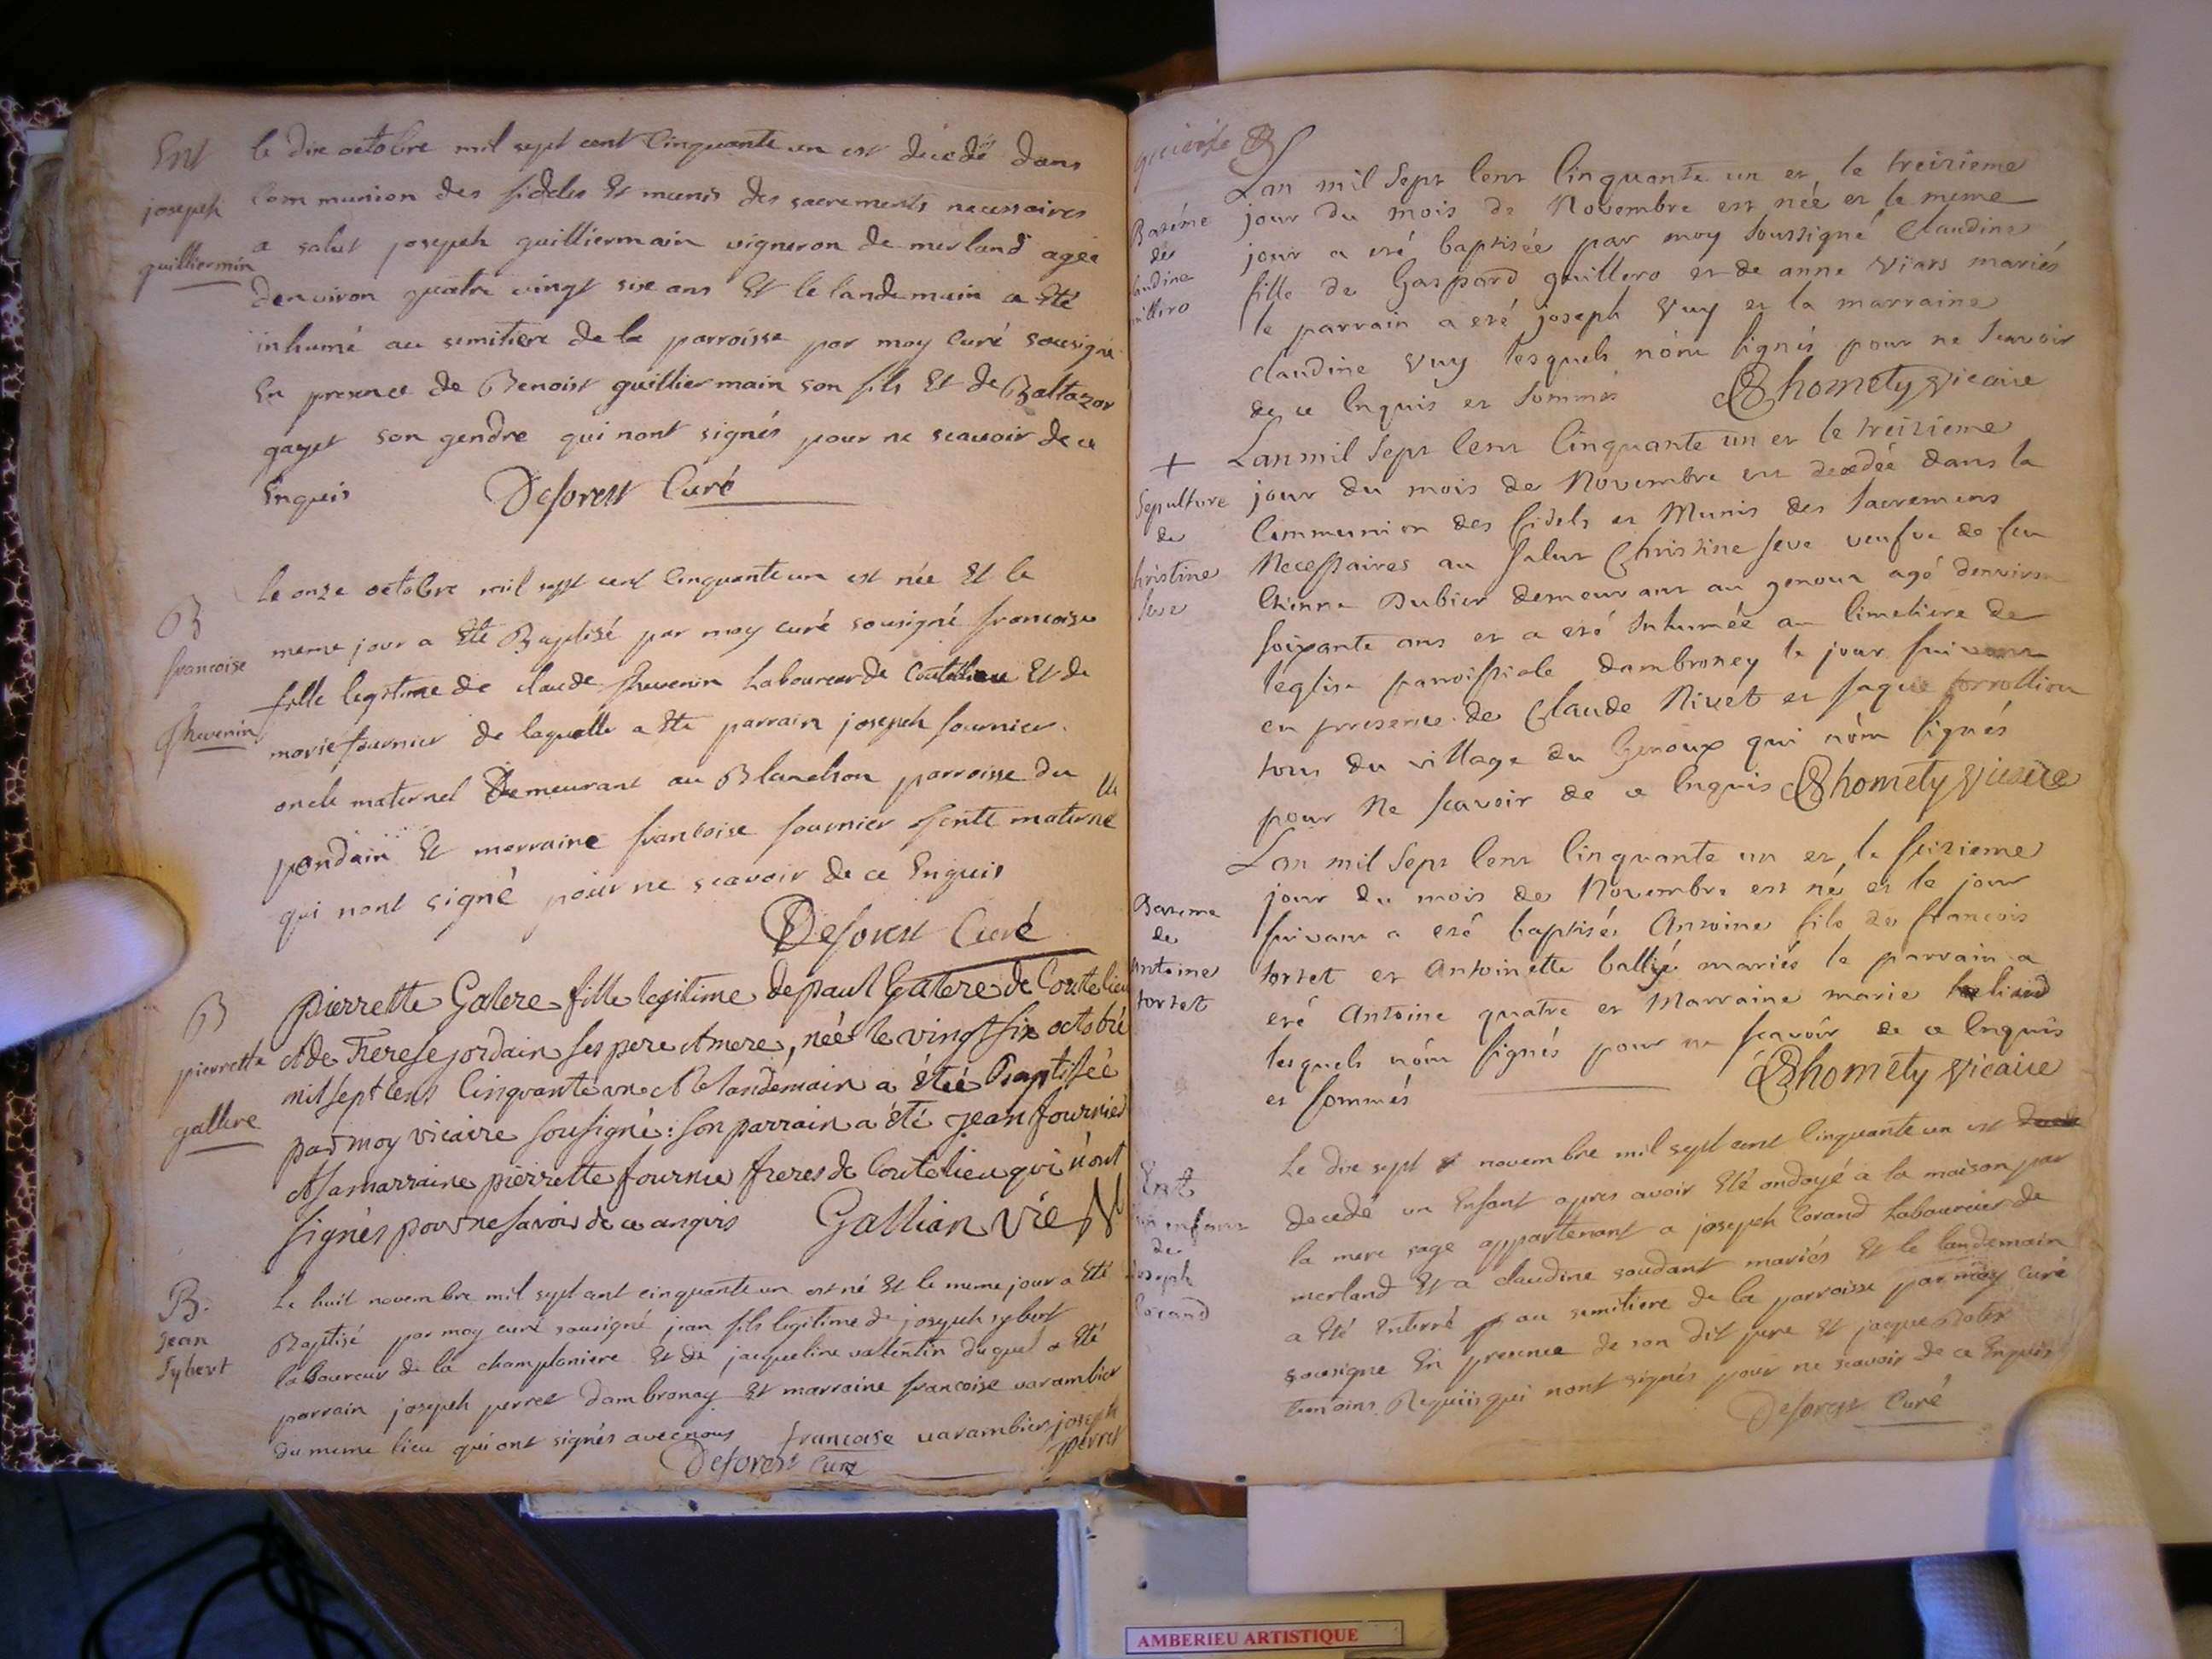 Ent
joseph
guilliermin
le dix octobre mil sept cent Cinquante un est decedé dans
Communion des fidelles Et munis des sacrements necessaires
a salut joseph guilliermain vigneron de merland agée
denviron quatre vingt six ans Et le landemain a Eté
inhumé au semitiere de la parroisse par moy Curé sousigné
En presence de Benoist guilliermain son fils Et de Baltazar
gayet son gendre qui nont signés pour ne scavoir de ce
Enquis Deforest Curé
B
francoise
thevenin
le onze octobre mil sept cent Cinquante un est née Et le
meme jour a Eté Baptisé par moy curé sousigné francoise
fille legitime de claude thevenin Laboureur de Coutelieu Et de
marie fournier de laquelle a Eté parrain joseph fournier
oncle maternel Demeurant au Blanchon parroisse du
pondain Et marraine francoise fournier tente maternelle
qui nont signé pour ne scavoir de ce Enquis
Deforest Curé
B
pierrette
gallere
pierrette Galere fille legitime de paul Galere de Coutelieu
et de Terese jordain ses pere et mere, née le vingt six octobre
mil sept cens Cinquante un et le landemain a été Baptisée
par moy vicaire sousigné: son parrain a été jean fournier
et sa marraine pierrette fournie freres de Coutelieu qui n'ont
signés pour ne savoir de ce anquis Gallian vic
B.
jean
Sybert
Le huit novembre mil sept cent cinquante un est né Et le meme jour a Eté
Baptisé par moy curé sousigné jean fils legitime de joseph sybert
laboureur de la champlaniere Et de jacqueline vallentin duquel a Eté
parrain joseph perret dambronay Et marraine francoise varambier
du meme lieu qui ont signés avec nous francoise varambier joseph
perret
Deforest Curé
Lan mil Sept Cent Cinquante un et le treizieme
jour du mois de Novembre est née et le meme
jour a eté baptisée par moy soussigné Claudine
fille de Gaspard guillero et de anne Viars mariés
le parrain a eté joseph Vuy et la marraine
claudine Vuy lesquels nont signés pour ne scavoir
de ce Enquis et sommés Chomety vicaire
+
Sepulture
de
christine
seve
Lan mil Sept Cent Cinquante un et le treizieme
jour du mois de Novembre est decedée dans la
Communion des fidels et Munis des Sacremens
Necessaires au salut Christine seve veufve de feu
Etienne Dubier demeurant au genoux agé denviron
soixante ans et a eté Inhumée au Cimetiere de
léglise parroissiale dambroney le jour suivant
en presence de Claude Nivet et Jaque
tous du village du Genoux qui nont signés
pour Ne scavoir de ce Enquis Chomety vicaire
Bateme
de
antoine
tortet
Lan mil Sept Cent Cinquante un et le seizieme
jour du mois de Novembre est né et le jour
suivant a eté baptisée Antoine fils de francois
tortet et Antoinette mariés le parrain a
eté Antoine quatre et Marraine marie
lesquels nont signés pour ne scavoir de ce Enquis
et sommés Chomety vicaire
Ent
un enfant
de
joseph
Corand
Le dix sept novembre mil sept cent Cinquante un est
decedé un Enfant apres avoir Eté ondoyé a la maison par
la mere sage appartenant a joseph Corand Laboureur de
merland Et a claudine soudant mariés Et le landemain
a Eté Enterré au semitiere de la parroisse par moy curé
sousigné En presence de son dit pere Et jaque
temoins Requis qui nont signés pour ne scavoir de ce Enquis
Deforest Curé
AMBERIEU ARTISTIQUE